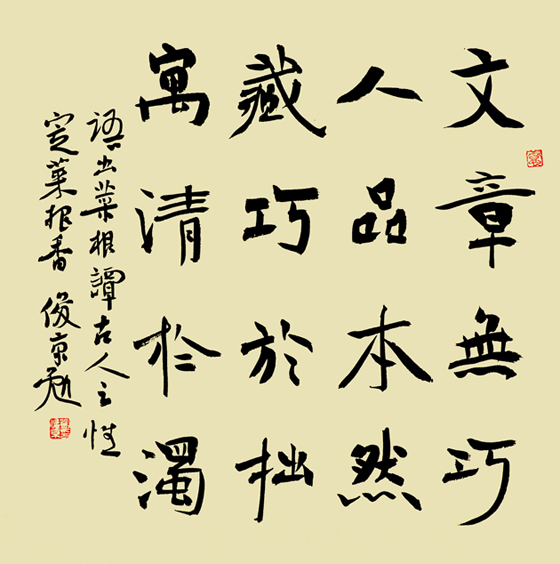 文章無巧
人品本然
藏巧於拙
寓清扵濁
語出菜根譚古人云性
定菜根香 俊京勉